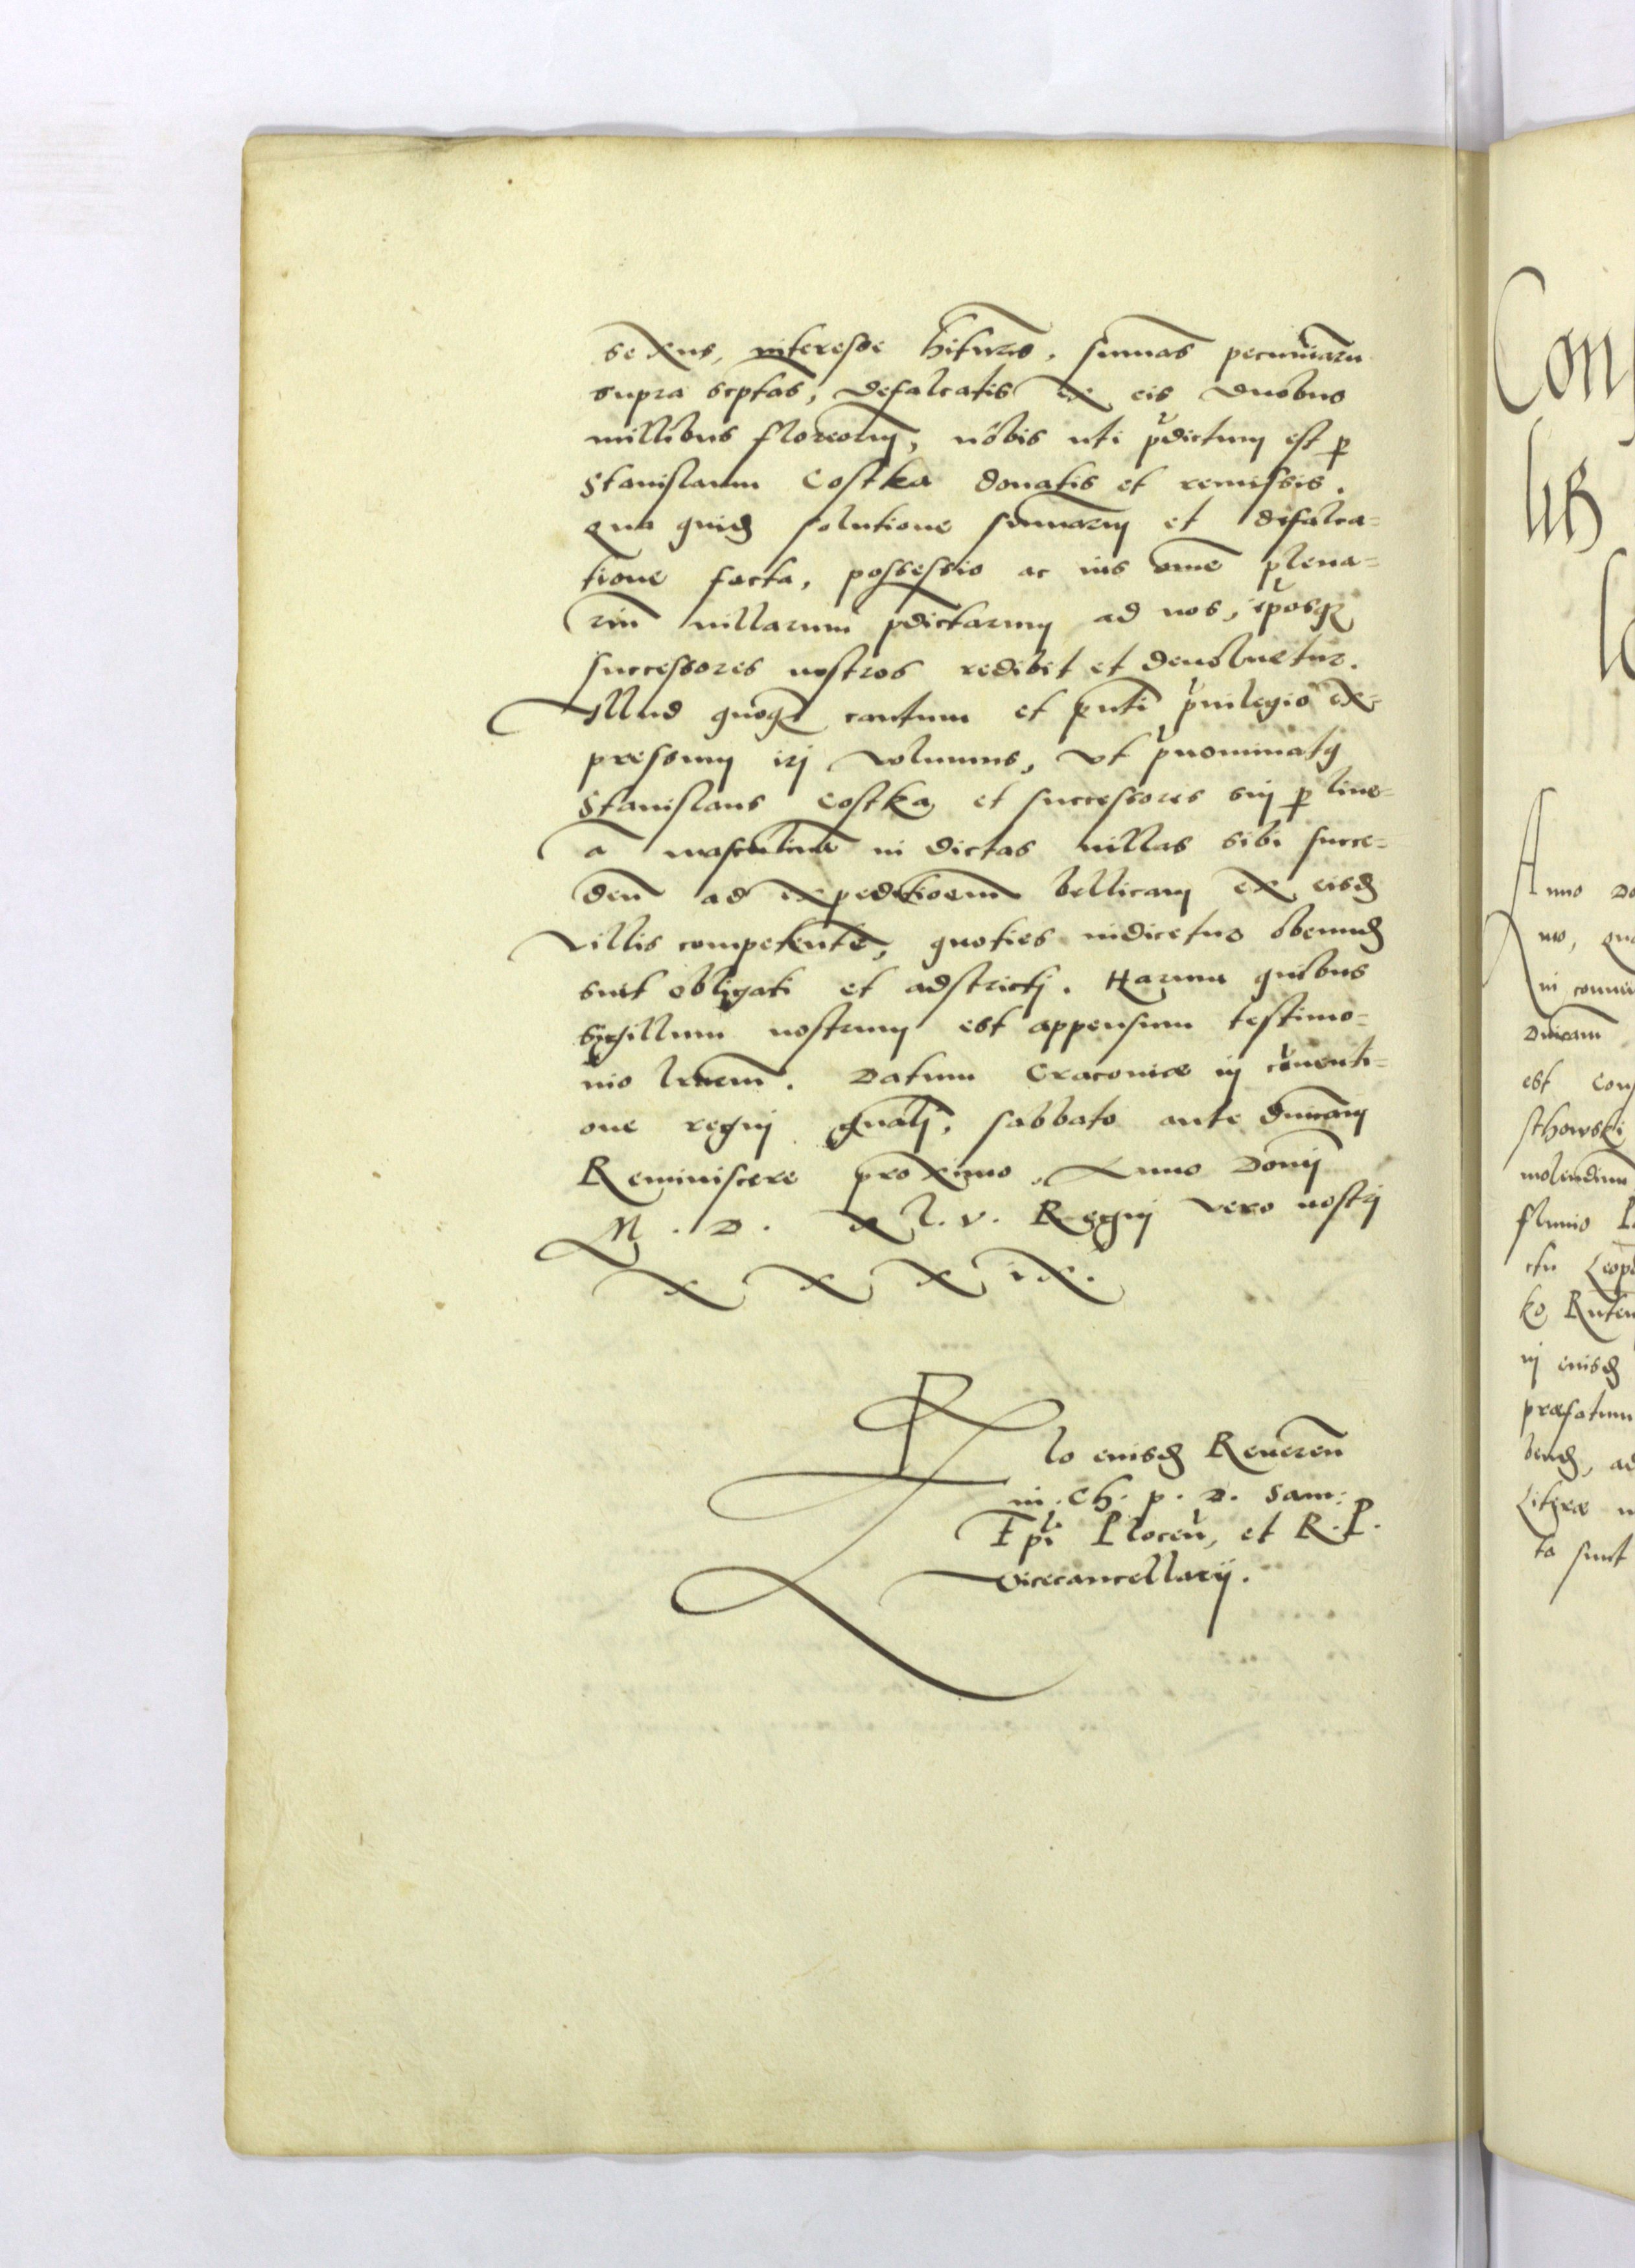 sexus, interesse hitur̃o, sum̃as pecuniarũ
supra sc̃ptas, defalcatis ex eis duobus
millibus floreorum, nobis uti p̃dictum est p
Stanislaum Costka donatis et remissis.
Qua quidẽ solutione sum̃arum et defalca=
tione facta, possessio ac ius om̃e plena=
riũ uillarum p̃dictarum ad nos, ip̃osq
successores nostros redibit et deuoluetur.
Illud quoq cautum et p̃nti priuilegio ex=
pressum iri volumus, vt p̃nominatq
Stanislaus Costka et successores sui p line=
ã masculinã in dictas uillas sibi succe=
den̄ ad expeditioem̄ bellicam ex eisd
villis competentẽ, quoties indicetur obeund
sint obligati et adstricti. Harum quibus
Sigillum nostrum est appensum testimo=
nio l̃rarum̃. Datum Cracouiæ in conuenti=
one regni gn̄ali, sabbato ante dn̄icam
Reminiscere proximo. Anno Domi
M. D. xl. v. Regni vero nostri
xxxix.
Rlo eiusd Reueren̄
in. Ch. p. D. Sam:
Ep̃i Plocen̄, et R. P.
vicecancellarij.
Con
lis
lo
Anno Do
mo, qua
in conuen
Dn̄icam
est Con
sthowski
molendinum
fluuio
ctu Leop
ko Ruten
in eiusd
præfatum
bend, ad
Literæ
ta sunt